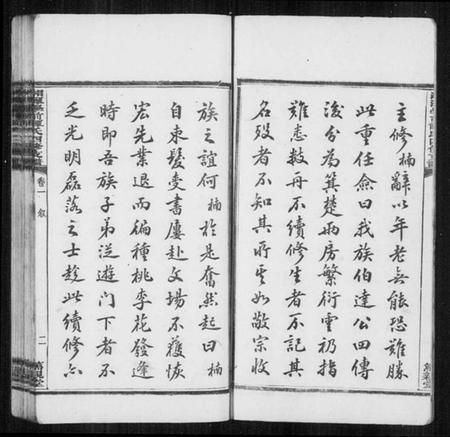 主修楠辭以年老無能恐難勝
此重任僉曰我族伯達公四傳
後分為箕楚兩房繁衍雲礽指
難悉數再不續修生者不記其
名歿者不知其所其如敬宗收
族之誼何楠於是奮然起曰楠
自束髮受書屢赴文場不獲恢
宏先業退而徧種桃李花發逢
時即吾族子弟從遊門下者不
乏光明磊落之士趁此續修亦
卷一 敘
二